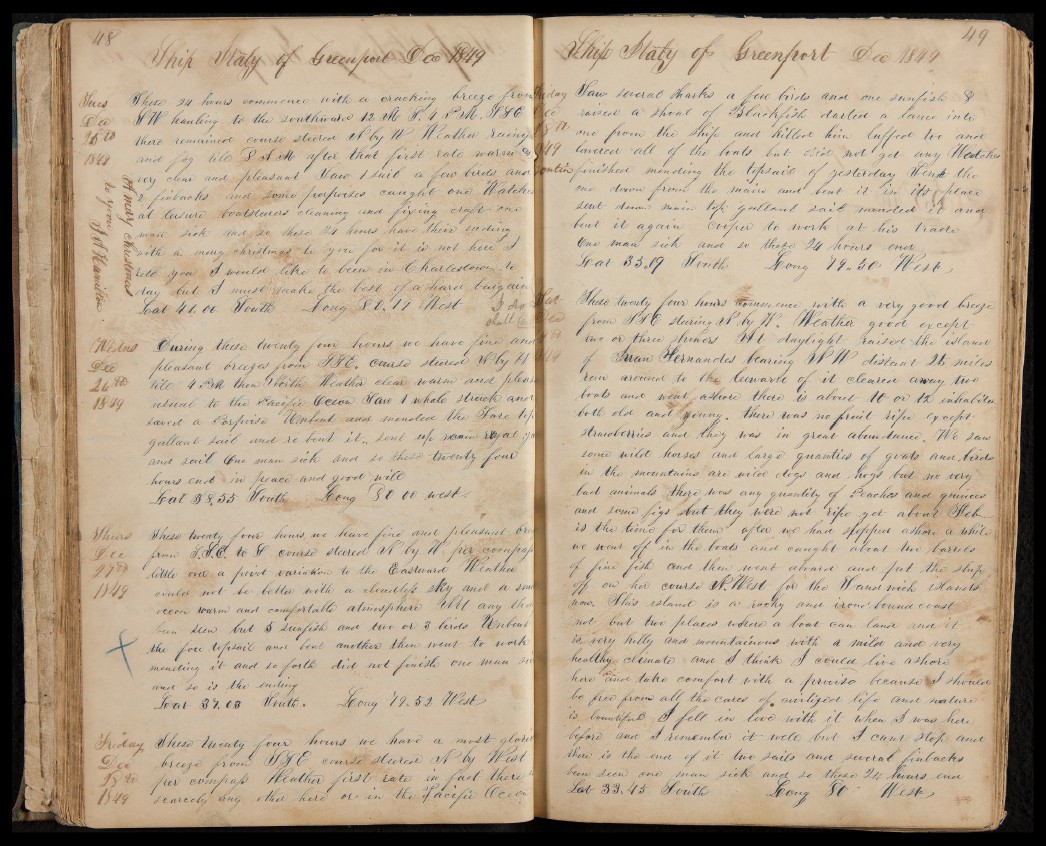 48
Ship Italy of Greenport Dec 1849
Tues
Dec
25th
1849
These 24 hours commence with a cracking breeze from
WW hauling to the southward 12 M S. 4 P.M. SSE
there remained course steered N by W Weather rainy
and fog till 8 A M after that first rate warm
very clear and pleasant Saw 1 sail a few birds and
2 finbacks and some porpoises caught one Watches
at leisure boatsteerers cleaning and fixing craft one
man sick and so these 24 hours have their ending
with a merry christmas to you for it is not here I
tell you I would like to been in Charlestown to
day but I must make the best of a hard bargain
Lat 41.00 South Long 80.11 West
A mary christmas
to you J A Hamilton
Wednes
Dec
26th
1849
During these twenty four hours we have fine and
pleasant breezes from SSE. course steered N by W
till 4 PM then North Weather clear warm and pleas
usual to the Pacific Ocean Saw 1 whale struck and
saved a Porpoise Unbent and mended the Fore top
gallant sail and re bent it, sent up main Royal
and sail One man sick and so these twenty four
hours ends in peace and good will
Lat 38.55 South Long 80 00 west
Thurs
Dec
27th
1849
These twenty four hours we have fine and pleasant
from S.S.E. to S course steered N by W per compass
little over a point variation to the Eastward Weather
could not be better with a cloudless sky and a
ocean warm and comfortable atmosphere Not any
been seen but 5 sunfish and two or 3 birds Unbent
the fore topsail and bent another then went to work
mending it and so forth did not finish one man
and so is the ending
Lat 37.03 South. Long 79.52 West
Friday
Dec
28th
1849
These twenty four hours we have a most
breeze from SSE course steered N by West
per compass Weather first rate in fact there
scarcely any other here or in the Pacific Ocean
49
Ship Italy of Greenport Dec 1849
Saw several sharks a few birds and one sunfish &
raised a shoal of Blackfish darted a lance into
one from the ship and killed him luffed to and
lowered all of the boats but did not get any Watches
finished mending the topsail of yesterday Sent the
one down from the main and bent it in its place
sent down main top gallant sail mended it and
bent it again Cooper to work at his trade
One man sick and so these 24 hours end
Lat 35.19 South Long 79.50 West
These twenty four hours commence with a very good breeze
from SSE steering N by W. Weather good except
two or three showers At daylight raised the island
of Juan Hernandes bearing NW distant 25 miles
ran around to the leeward of it cleared away two
boats and went ashore there is about 10 or 12 inhabitan
both old and young. there was no fruit ripe except
strawberries and they was in great abundance. We saw
some wild horses and large quantities of goats and birds
in the mountains are wild dogs and hogs but no very
bad animals there was any quantity of Peaches and quinces
and some figs but they were not ripe yet about Feb
is the time for them after we had stopped ashore a while
we went off in the boats and caught about two barrels
of fine fish and then went aboard and put the ship
off on her course N.West for the Sandwich islands
now. This island is a rocky and iron bound coast
not but two places where a boat can land and it
is very hilly and mountainous with a mild and very
healthy climate and I think I could live ashore
here and take comfort with a proviso because I should
be free from all the cares of civilized life and nature
is bountiful I fell in love with it when I was here
before and I remember it well but I cant stop and
there is the end of it two sails and several finbacks
been seen one man sick and so these 24 hours end
Lat 33.45 South Long 80 West